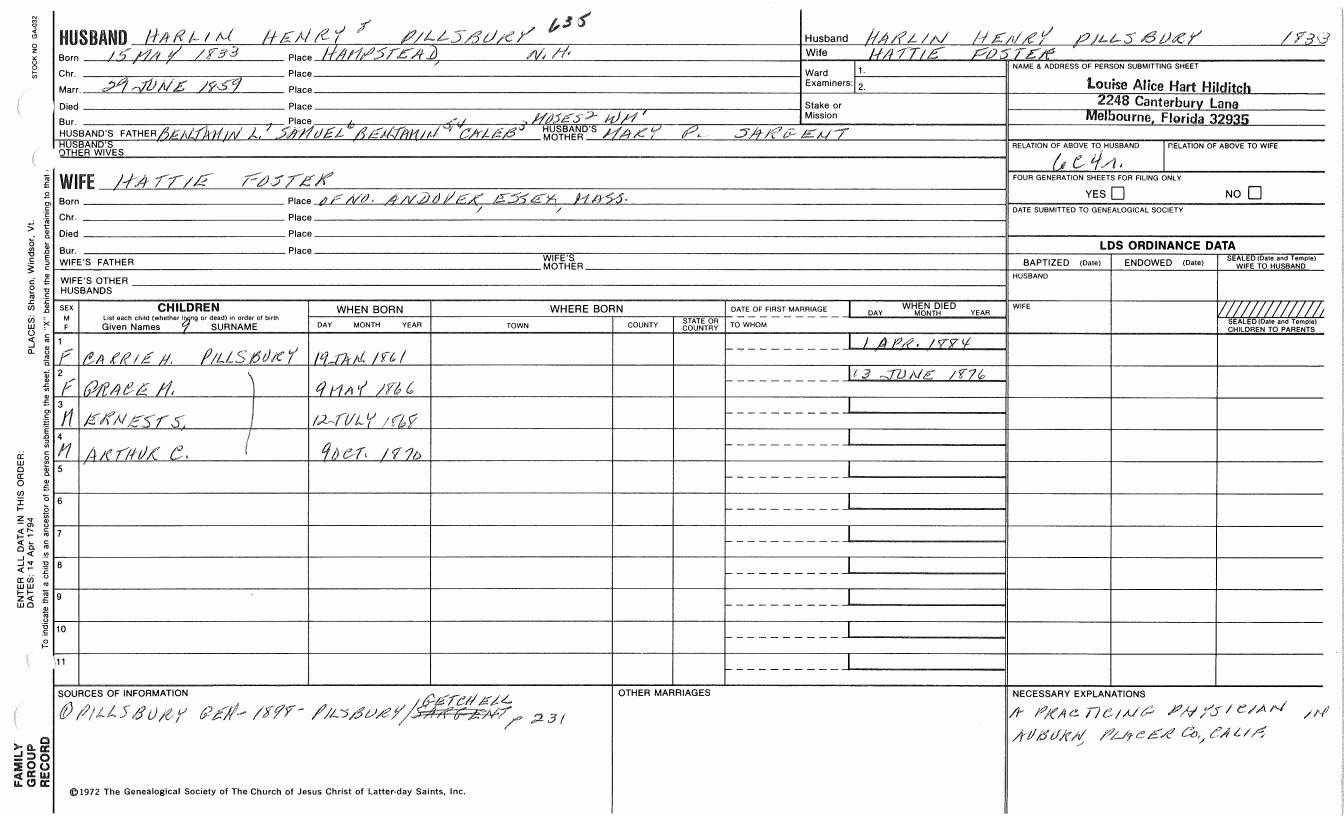 STOCK NO GA-032
HUSBAND HARLIN HENRY 8 PILLSBURY 635
Born 15 MAY 1833 Place HAMPSTEAD, N.H.
Chr. Place
Marr. 29 JUNE 1859 Place
Died Place
Bur. Place MOSES 2 WM 1
HUSBAND'S FATHER BENJAMIN L. 7 SAMUEL 6 BENJAMIN 5, 4 CALEB 3 HUSBAND'S MOTHER MARY P. SARGENT
HUSBAND'S OTHER WIVES
Husband HARLIN HENRY PILLSBURY 1833
Wife HATTIE FOSTER
Ward Examiners: 1.
2.
Stake or Mission
NAME & ADDRESS OF PERSON SUBMITTING SHEET
Louise Alice Hart Hilditch
2248 Canterbury Lane
Melbourne, Florida 32935
RELATION OF ABOVE TO HUSBAND RELATION OF ABOVE TO WIFE
6C4r.
FOUR GENERATION SHEETS FOR FILING ONLY
YES NO
DATE SUBMITTED TO GENEALOGICAL SOCIETY
WIFE HATTIE FOSTER
Born Place OF NO. ANDOVER, ESSEX, MASS.
Chr. Place
Died Place
Bur. Place
WIFE'S FATHER WIFE'S MOTHER
WIFE'S OTHER HUSBANDS
LDS ORDINANCE DATA
BAPTIZED (Date) ENDOWED (Date) SEALED (Date and Temple) WIFE TO HUSBAND
HUSBAND
WIFE
SEALED (Date and Temple) CHILDREN TO PARENTS
SEX M F CHILDREN WHEN BORN WHERE BORN DATE OF FIRST MARRIAGE WHEN DIED
List each child (whether living or dead) in order of birth
Given Names 9 SURNAME DAY MONTH YEAR TOWN COUNTY STATE OR COUNTRY TO WHOM DAY MONTH YEAR
1 F CARRIE H. PILLSBURY 19 JAN. 1861 1 APR. 1884
2 F GRACE M. 9 MAY 1866 13 JUNE 1876
3 M ERNEST S. 12 JULY 1868
4 M ARTHUR C. 9 OCT. 1870
5
6
7
8
9
10
11
SOURCES OF INFORMATION
① PILLSBURY GEN- 1898- PILSBURY/GETCHELL SARGENT p 231
OTHER MARRIAGES
NECESSARY EXPLANATIONS
A PRACTICING PHYSICIAN IN
AUBURN, PLACER CO., CALIF.
©1972 The Genealogical Society of The Church of Jesus Christ of Latter-day Saints, Inc.
FAMILY
GROUP
RECORD
ENTER ALL DATA IN THIS ORDER:
DATES: 14 Apr 1794 PLACES: Sharon, Windsor, Vt.
To indicate that a child is an ancestor of the person submitting the sheet, place an "X" behind the number pertaining to that